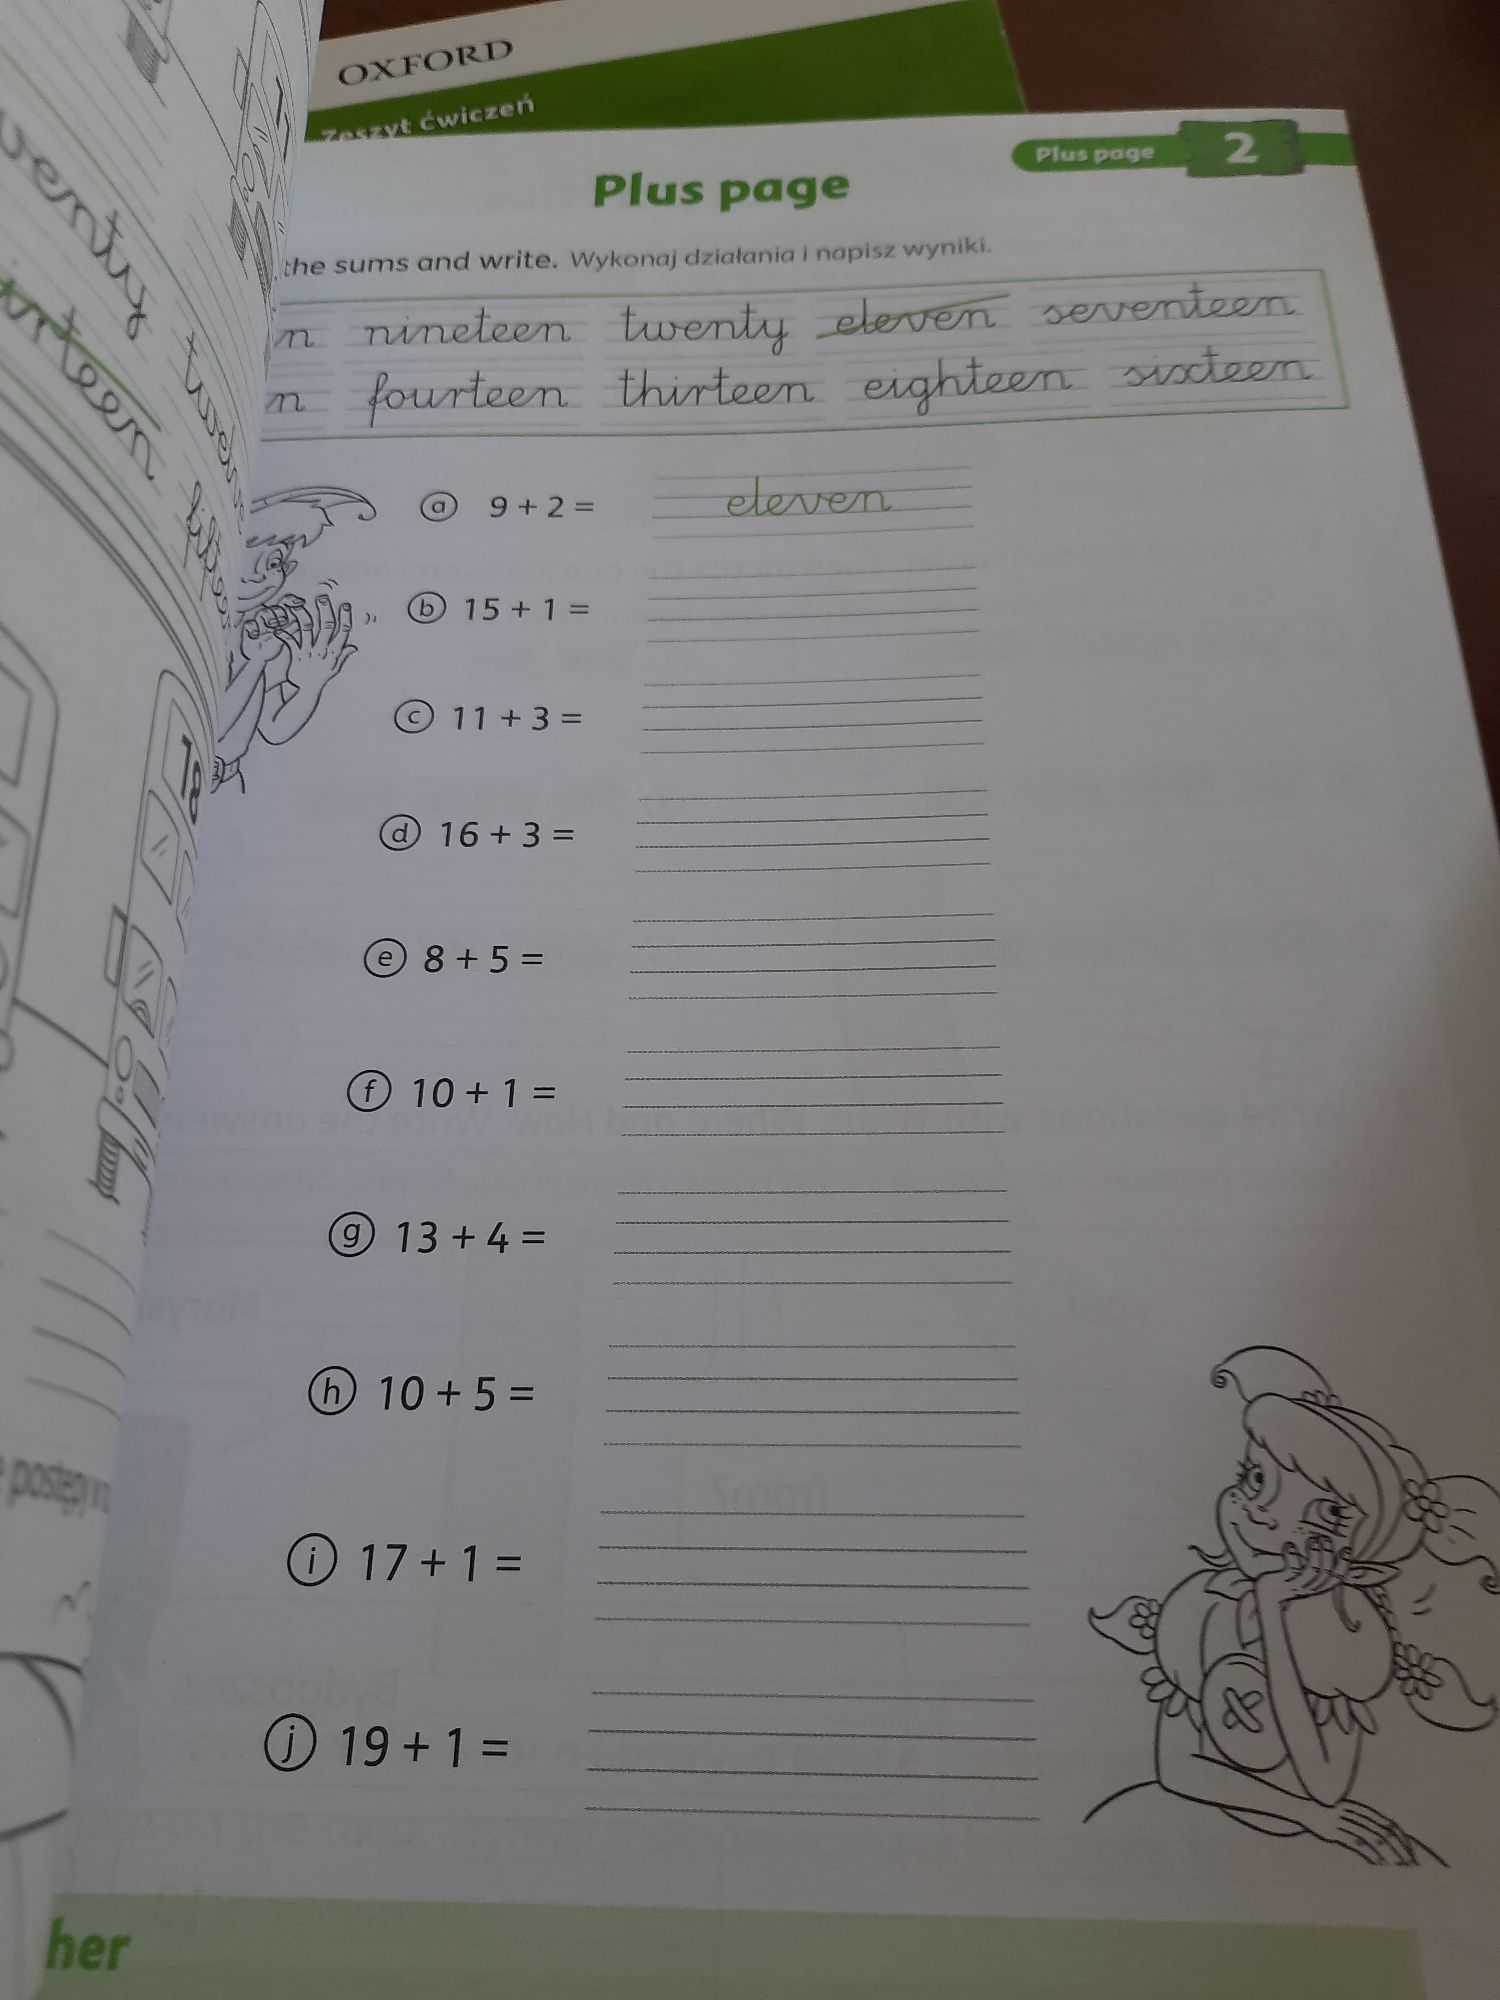 OXFORD
Zeszyt ćwiczeń
Plus page 2
Plus page
the sums and write. Wykonaj działania i napisz wyniki.
nineteen twenty eleven seventeen
fourteen thirteen eighteen sixteen
a 9 + 2 = eleven
b 15 + 1 =
c 11 + 3 =
d 16 + 3 =
e 8 + 5 =
f 10 + 1 =
g 13 + 4 =
h 10 + 5 =
i 17 + 1 =
j 19 + 1 =
18
her